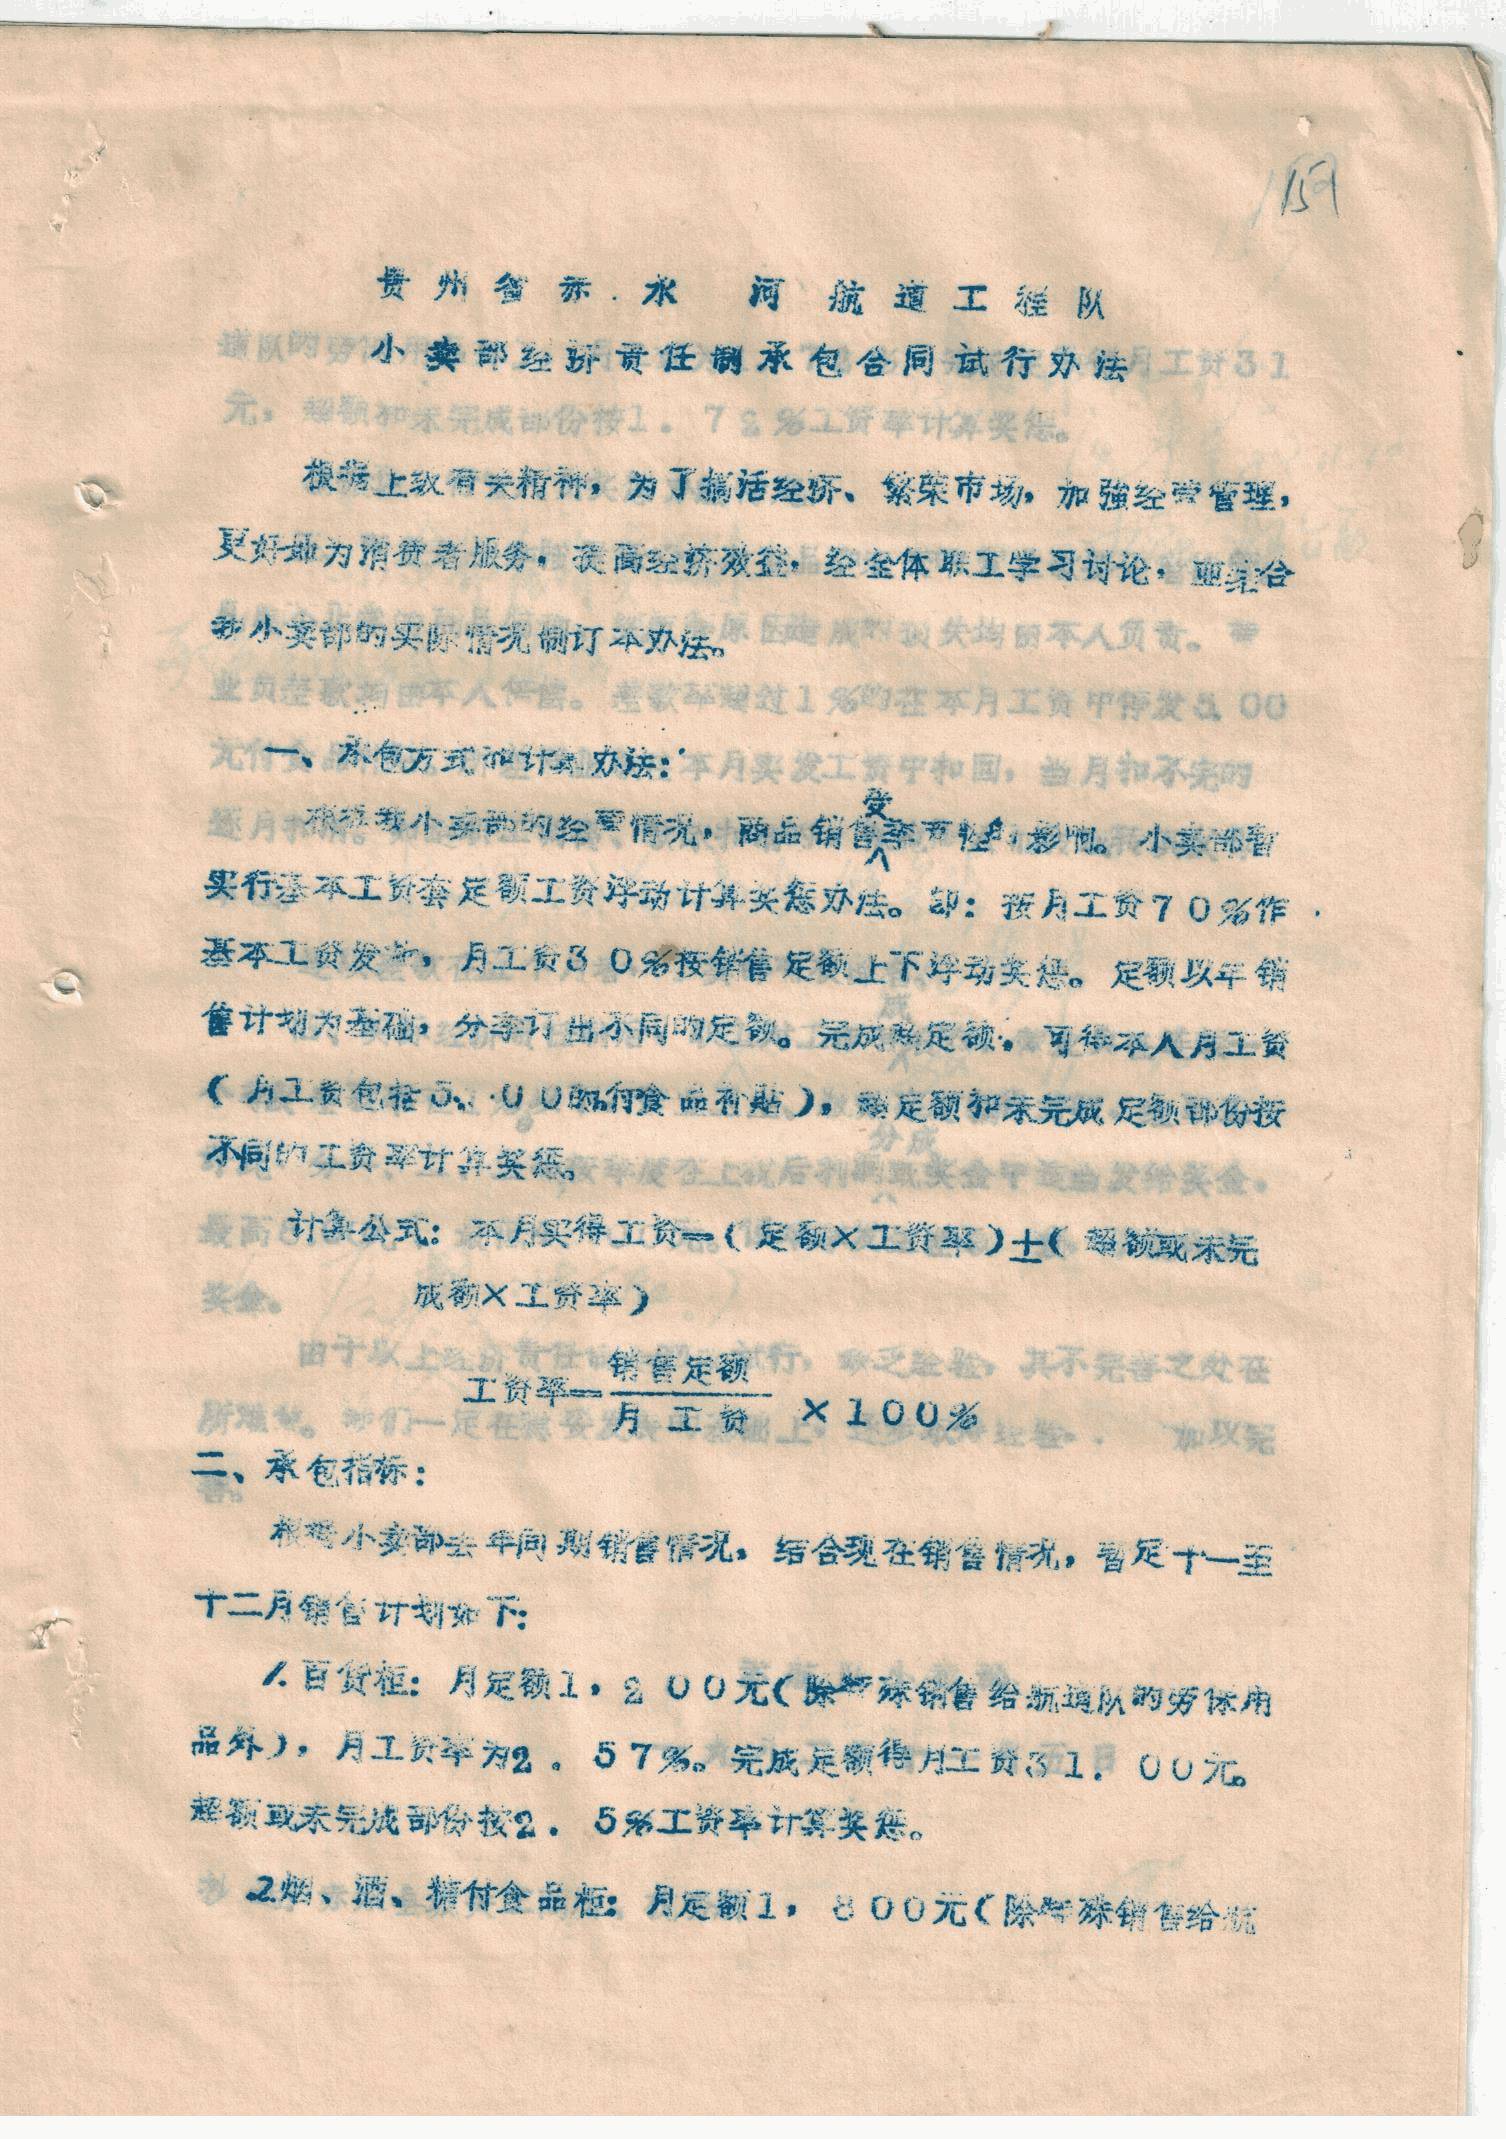 159
贵州省赤水河航道工程队
小卖部经济责任制承包合同试行办法
根据上级有关精神，为了搞活经济、繁荣市场，加強经营管理，
更好地为消费者服务，提高经济效益，经全体职工学习讨论，并结合
我小卖部的实际情况制订本办法。
一、承包方式和计算办法：
根据我小卖部的经营情况，商品销售受季节性的影响。小卖部暂
实行基本工资套定额工资浮动计算奖惩办法。即：按月工资70%作
基本工资发给，月工资30%按销售定额上下浮动奖惩。定额以年销
售计划为基础，分季订出不同的定额。完成定额，可得本人月工资
（月工资包括5.00的付食品补贴），超定额和未完成定额部份按
不同的工资率计算奖惩。
计算公式：本月实得工资=（定额×工资率）±（超额或未完
成额×工资率）
工资率=销售定额/月工资×100%
二、承包指标：
根据小卖部去年同期销售情况，结合现在销售情况，暂定十一至
十二月销售计划如下：
1.百货柜：月定额1，200元（除特殊销售给航道队的劳保用
品外），月工资率为2．57%。完成定额得月工资31．00元。
超额或未完成部份按2．5%工资率计算奖惩。
2烟、酒、糖付食品柜：月定额1，800元（除特殊销售给航